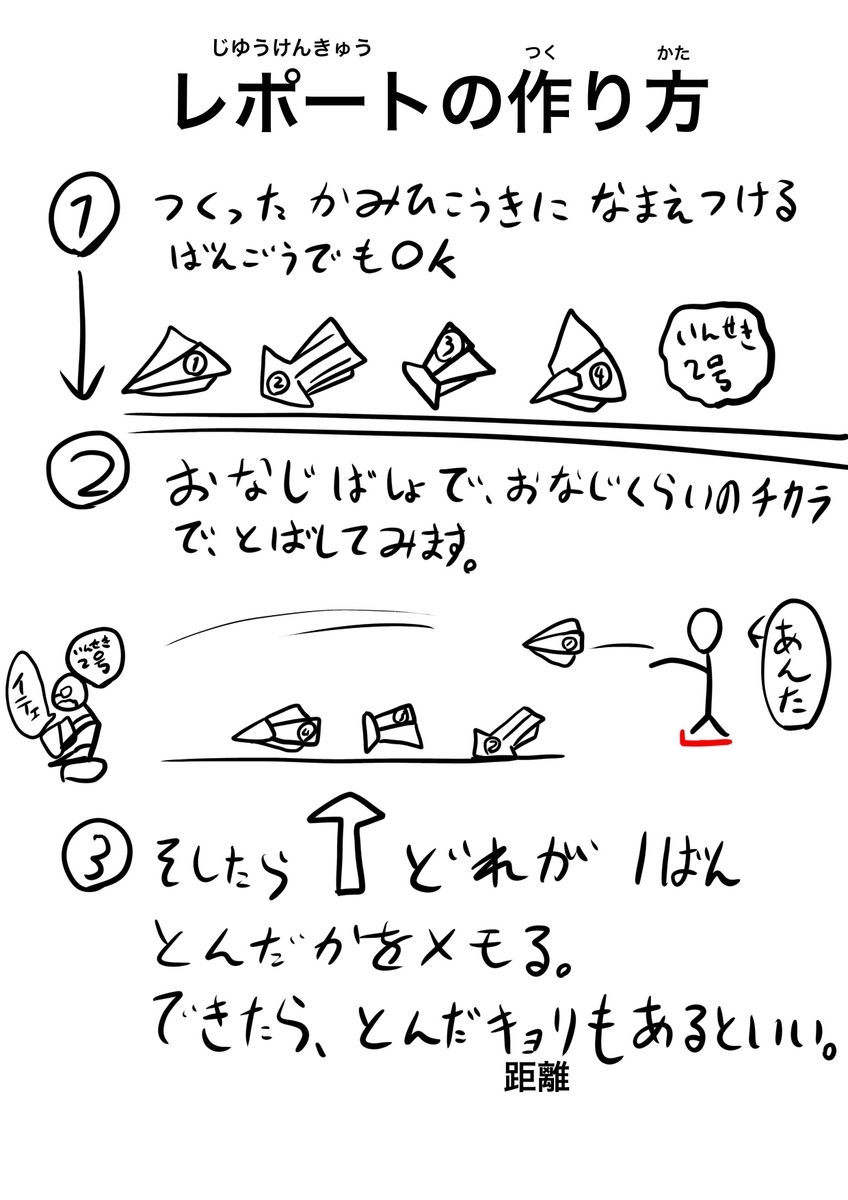 じゆうけんきゅう
つく
かた
レポートの作り方
1
つくった かみひこうきに なまえつける
ばんごうでもOK
①
②
③
④
いんせき
2号
2
おなじばしょで、おなじくらいのチカラ
で、とばしてみます。
いんせき
2号
イテェ
①
あんた
④
③
②
3
そしたら どれが 1ばん
とんだかをメモる。
できたら、とんだキョリもあるといい。
距離